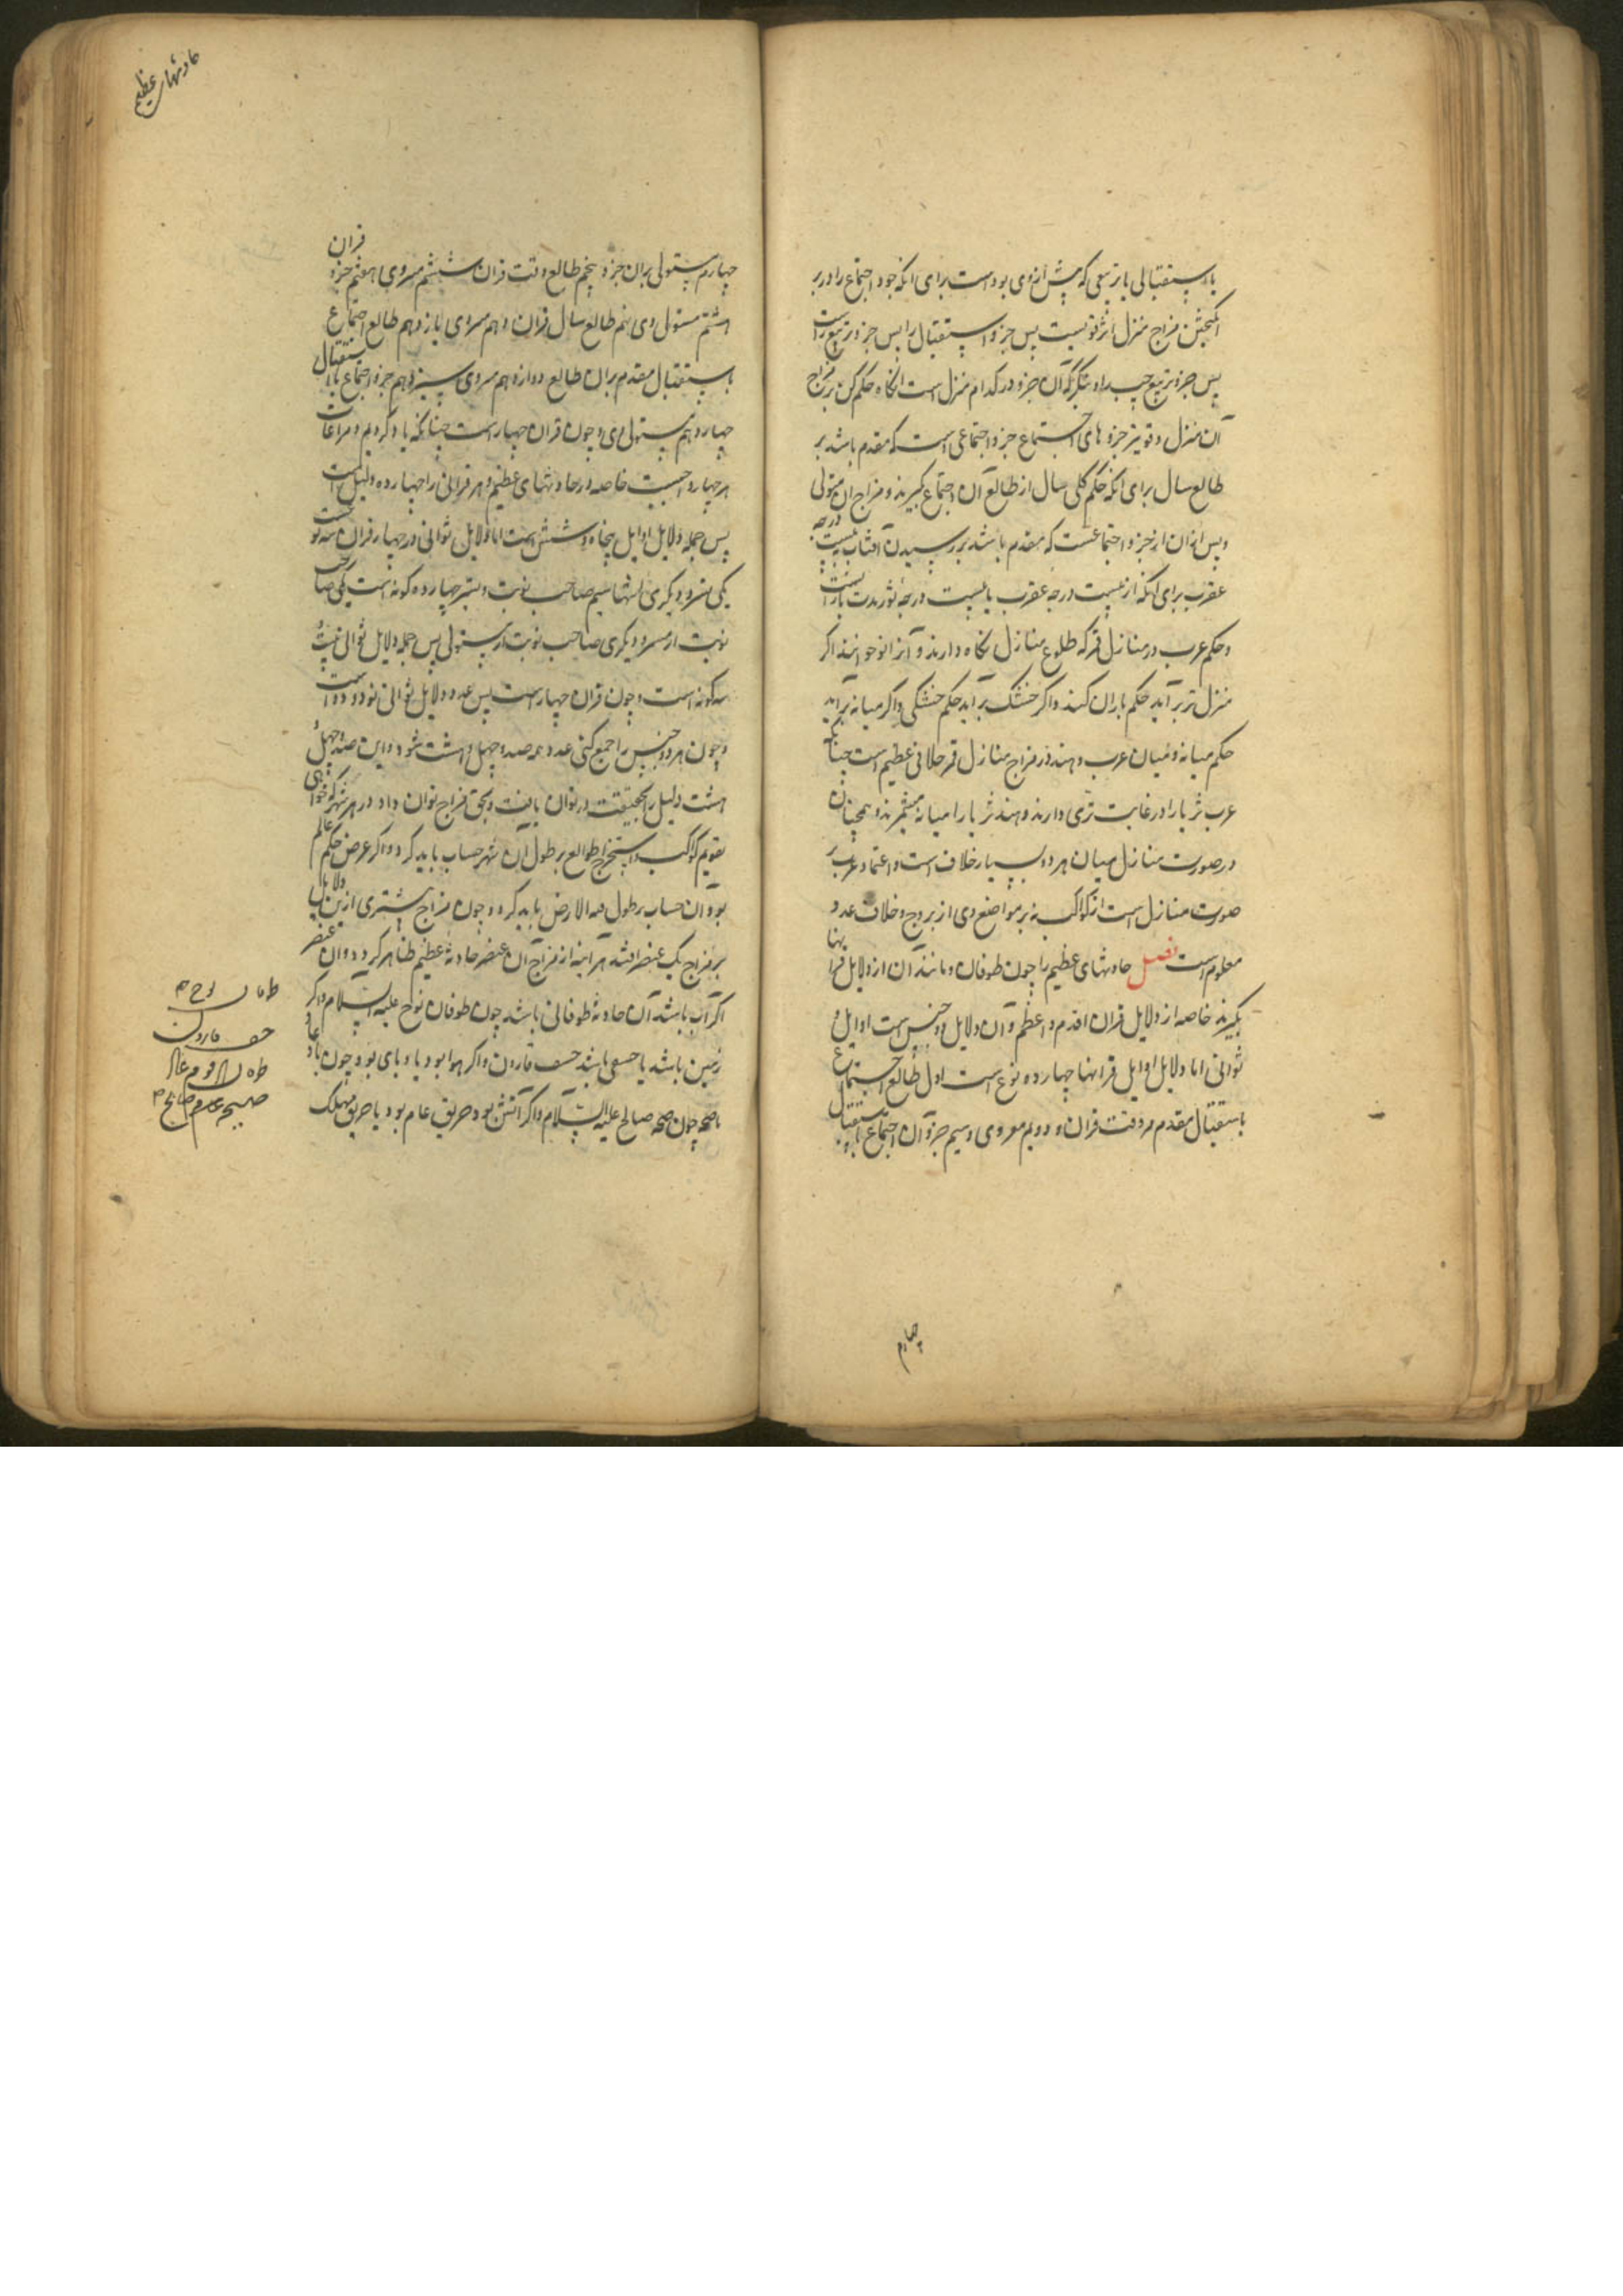 یا استقبالی یا تربیعی که پیش از وی بوده است برای انکه جزو اجتماع را در بر
انکیختن مزاج منزل اثر قویست پس جزو استقبال را پس جزو تربیع راست
پس جزو تربیع چپ را و بنکر که آن جزو در کدام منزل است انکاه حکم کن بر مزاج
آن منزل و قویتر جزوهای اجتماع جزو اجتماعی است که مقدم باشد بر
طالع سال برای انکه حکم کلی سال از طالع آن اجتماع کیرند و مزاج ان مستولی
و پس ازان از جزو اجتماعست که مقدم باشد بر رسیدن آفتاب به بیست درجه
عقرب برای انکه از بیست درجه عقرب تا بیست درجه ثور مدت بارانست
و حکم عرب در منازل قمر که طلوع منازل نکاه دارند و آنرا نو خوانند اکر
منزل تر برآید حکم باران کنند و اکر خشک برآید حکم خشکی و اکر میانه برآید
حکم میانه و میان عرب و هند در مزاج منازل قمر خلافی عظیم است چنانک
عرب ثریا را در غایت تری دارند و هند ثریا را میانه میشمرند و همچنان
در صورت منازل میان هر دو بسیار خلاف است و اعتماد عرب بر
صورت منازل است از کواکب نه بر مواضع وی از بروج و خلاف عدد
معلوم است فصل حادثهای عظیم را چون طوفان و مانند آن از دلایل قرانها
بکیرند خاصه از دلایل قران اقدم و اعظم و آن دلایل دو جنس است اوایل و
ثوانی اما دلایل اوایل قرانها چهارده نوع است اول طالع اجتماع
یا استقبال مقدم بر وقت قران و دویم مسروی و سیم جزو آن اجتماع یا استقبال
چهارم
حادثهای عظیم
چهارم مستولی بران جزو پنجم طالع وقت قران ششم مسروی هفتم جزو قران
هشتم مستولی وی نهم طالع سال قران دهم مسروی یازدهم طالع اجتماع
یا استقبال مقدم بران طالع دوازدهم مسروی سیزدهم جزو اجتماع یا استقبال
چهاردهم مستولی وی و چون قران چهار است چنانکه یاد کردیم و مراعات
هر چهار واجبست خاصه در حادثهای عظیم و هر قرانی را چهارده دلیل است
پس جمله دلایل اوایل پنجاه و شش است اما دلایل ثوانی در چهار قران سه نوعست
یکی مسرو دیکری انتها سیم صاحب نوبت و مسیر چهارده کونه است یکی صاحب
نوبت از مسرو دیکری صاحب نوبت از مستولی پس جمله دلایل ثوانی بیست
سه کونه است و چون قران چهار است پس عدد دلایل ثوانی نود و دو است
و چون هر دو جنس را جمع کنی عدد همه صد و چهل و هشت شود و این صد و چهل
هشت دلیل را بحقیقت در توان یافت و بحق مزاج توان داد در هر شهر که خواهی
تقویم کواکب و استخراج طوالع بر طول آن شهر حساب باید کرد و اکر عرض حکم عالم
بود آن حساب بر طول قبه الارض باید کرد و چون مزاج بیشتری ازین دلایل
بر مزاج یک عنصر افتد هر آینه از مزاج آن عنصر حادثه عظیم ظاهر کردد و آن عنصر
اکر آب باشد آن حادثه طوفانی باشد چون طوفان نوح علیه السلام و اکر
زمین باشد یا خسفی باشد خسف قارون و اکر هوا بود یا وبای بود چون باد عاد
یا صیحه چون صیحه صالح علیه السلام و اکر آتش بود حریق عام بود یا حریق مهلک
طوفان نوح ۴
خسف قارون
طوفان قوم عاد
صیحه قوم صالح ۴